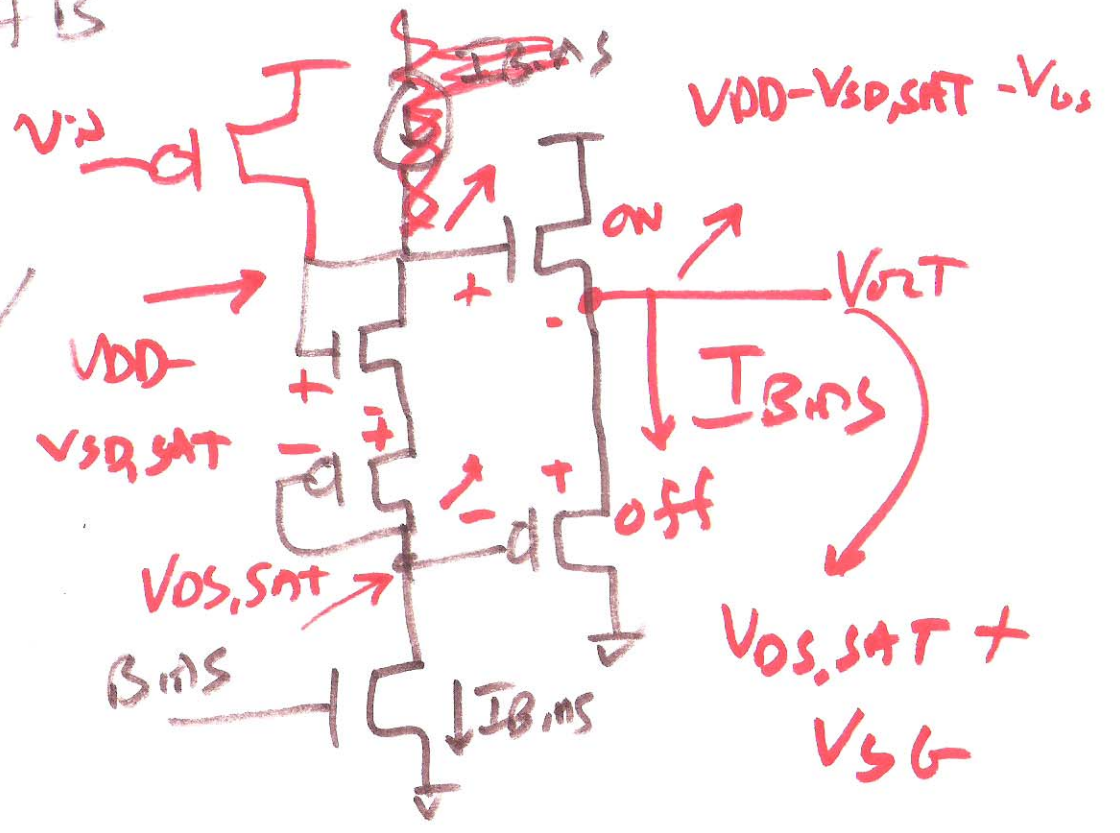 IBIAS
VDD-VSD,SAT -VGS
VIN
ON
+
-
VOUT
VDD-
VSD,SAT
+
-
+
-
IBIAS
+
-
Off
VDS,SAT
BIAS
IBIAS
VDS,SAT +
VSG